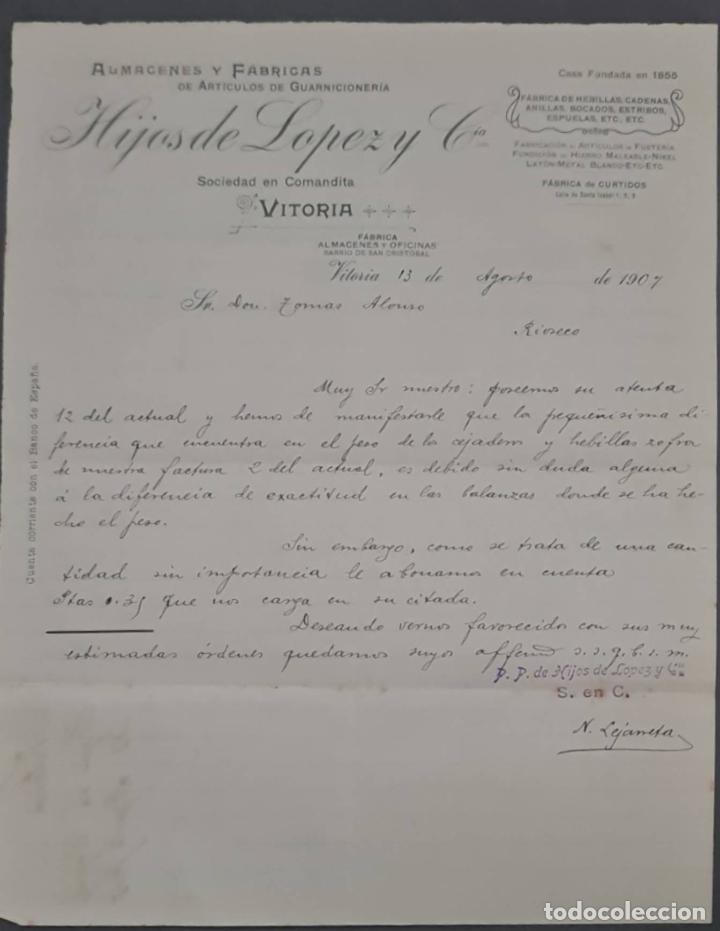 ALMACENES Y FÁBRICAS
DE ARTÍCULOS DE GUARNICIONERÍA
Hijos de Lopez y Cía
Sociedad en Comandita
VITORIA
FÁBRICA
ALMACENES Y OFICINAS
BARRIO DE SAN CRISTÓBAL
Casa Fundada en 1855
FÁBRICA DE HEBILLAS, CADENAS,
ANILLAS, BOCADOS, ESTRIBOS,
ESPUELAS, ETC, ETC.
FABRICACIÓN DE ARTÍCULOS DE FUSTERÍA
FUNDICIÓN DE HIERRO MALEABLE-NIKEL
LATÓN-METAL BLANCO-ETC-ETC.
FÁBRICA DE CURTIDOS
Calle de Santa Isabel 1, 3, 5
Vitoria 13 de Agosto de 1907
Sr. Don Tomas Alonso
Rioseco
Muy Sr nuestro: poseemos su atenta
12 del actual y hemos de manifestarle que la pequeñisima di
ferencia que encuentra en el peso de los cejaderos y hebillas zofra
de nuestra factura 2 del actual, es debido sin duda alguna
á la diferencia de exactitud en las balanzas donde se ha he-
cho el peso.
Sin embargo, como se trata de una can-
tidad sin importancia le abonamos en cuenta
Ptas 0.35 que nos carga en su citada.
Deseando vernos favorecidos con sus muy
estimadas órdenes quedamos suyos s.s.q.b.s.m.
P. P. de Hijos de Lopez y Cía
S. en C.
N. Lejarreta
Cuenta corriente con el Banco de España.
todocoleccion.net